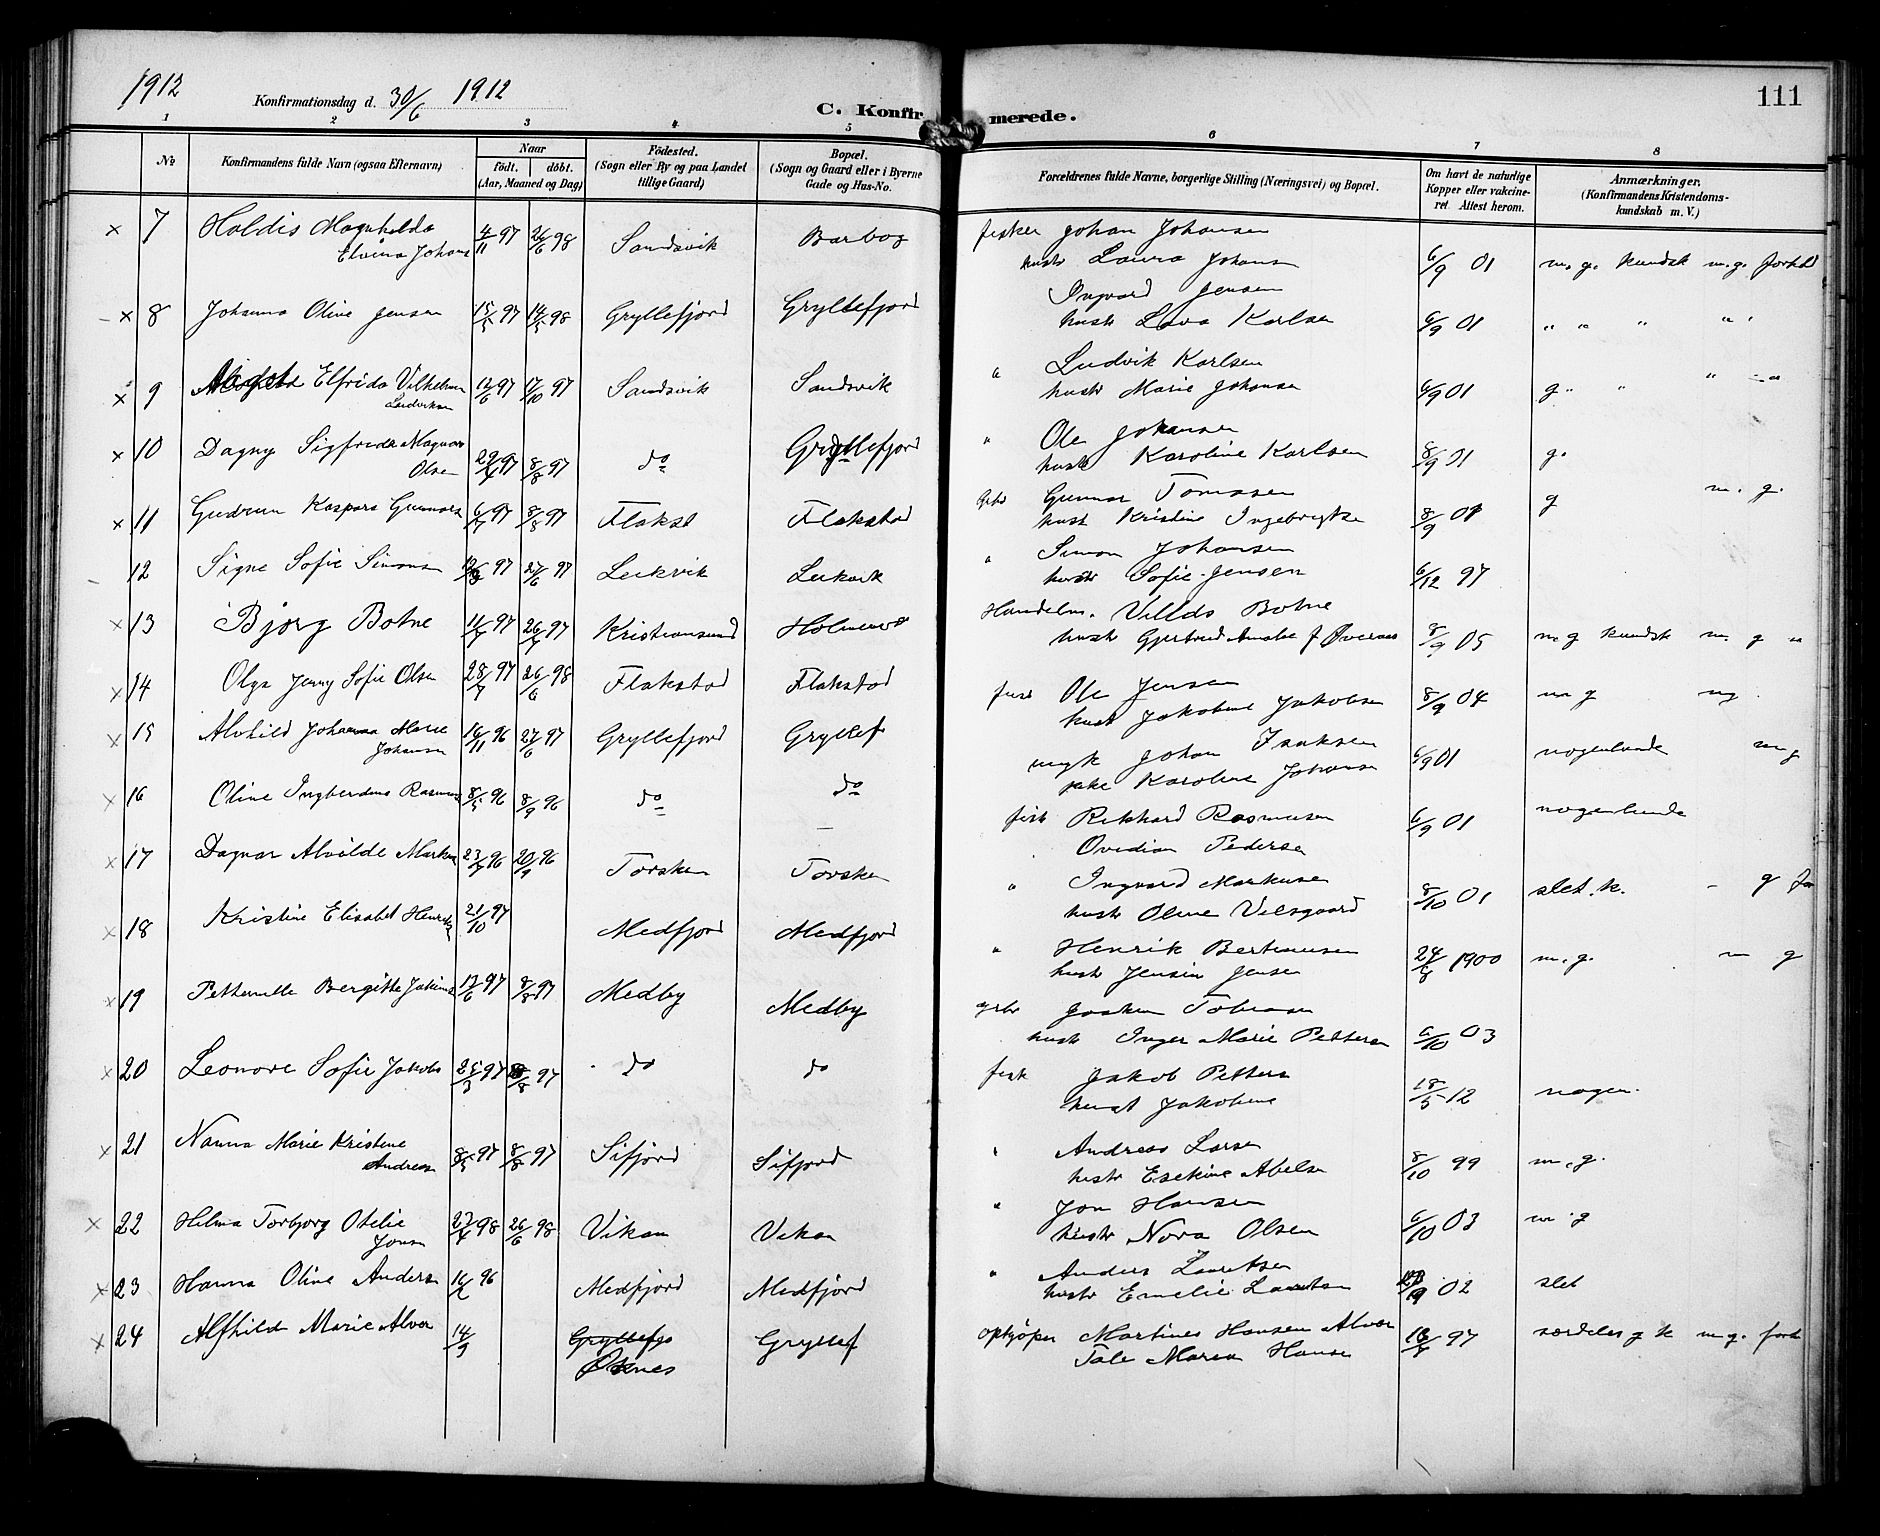 1912
Konfirmationsdag d. 30/6 1912
C. Konfirmerede.
111
1 2 3 4 5 6 7 8
No
Konfirmandens fulde Navn (ogsaa Efternavn)
Naar
födt. döbt.
(Aar, Maaned og Dag)
Födested.
(Sogn eller By og paa Landet
tillige Gaard)
Bopæl.
(Sogn og Gaard eller i Byerne
Gade og Hus-No.
Forældrenes fulde Navne, borgerlige Stilling (Næringsvei) og Bopæl.
Om havt de naturlige
Kopper eller vakcine-
ret. Attest herom.
Anmærkninger.
(Konfirmandens Kristendoms-
kundskab m. V.)
x 7 Haldis Magnhilda 4/11 97 26/6 98 Sandsvik Barbog fisker Johan Johansen
Elvina Johans hustr Laura Johans 6/9 01 m. g. kundsk m. g. forhld
x 8 Johanna Olive Jensen 15/5 97 14/5 98 Gryllefjord Gryllefjord Ingvard Jensen
hustr Lava Karlsen 6/9 01 " " " " "
x 9 Elfrida Vilhelmin 12/6 97 17/10 97 Sandsvik Sandsvik " Ludvik Karlsen
Ludviksen hustr Marie Johansen 6/9 01 g " " " "
x 10 Dagny Sigfrida Magnora 29/4 97 8/8 97 do Gryllefjord " Ole Johansen
Olsen hustr Karoline Karlsen 8/9 01 g.
x 11 Gudrun Kaspara Gunnars 6/7 97 8/8 97 Flakst Flakstad gbr Gunnar Tomasen m. g.
hust Kristine Ingebrigtse 8/9 01 g
12 Signe Sofie Simons 97 27/6 97 Leikvik Leikvik " Simon Johansen
hustr Sofie Jensen 6/12 97
x 13 Bjorg Botne 11/4 97 26/4 97 Kristiansund Holmenes Handelm. Villads Botne
hustr Gjertrud Amalie f Overaas 8/9 05 m g kundsk m. g "
x 14 Olga Jenny Sofie Olsen 28/7 97 26/6 98 Flakstad Flakstad fisk Ole Jensen
hust Jakobine Jakobsen 8/9 04 m g mg.
x 15 Alvhild Johanna Marie 16/11 96 27/6 97 Gryllefjord Gryllef ungk Johan Isaksen
Johansen pike Karoline Johansen 6/9 01 nogenlunde m g
x 16 Oline Ingberdine Rasmuss 8/5 96 8/9 96 do do fisk Rikhard Rasmusen
Ovedian Pedersen 6/9 01 nogenlunde
x 17 Dagnar Alvilde Markus 23/7 96 20/9 96 Torsken Torsken " Ingvard Markusen
hustr Oline Vilsgaard 8/10 01 slet. k. - g for
x 18 Kristine Elisabet Henriks 21/10 97 Medfjord Medfjord " Henrik Berteussen
hustr Jensin Jensen 24/8 1900 m. g. m g
x 19 Petternelle Bergitte Jakims 17/6 97 8/8 97 Medby Medby gbr Joakim Tobiasen
hust Inger Marie Pettersen 6/10 03
x 20 Leonore Sofie Jakobs 25/3 97 8/8 97 do do fisk Jakob Petters
hust Jakobine 18/5 12 nogen.
x 21 Nanna Marie Kristine 8/5 97 8/8 97 Sifjord Sifjord " Andreas Larsen
Andreasen hustr Esekine Abelsen 8/10 99 m. g.
x 22 Helma Torbjorg Otelie 27/4 98 26/6 98 Vikan Vekan " Jon Hansen
Jonsen hustr Nora Olsen 6/10 03 m. g
x 23 Hanna Oline Anders 16/2 96 Medfjord Medfjord " Anders Lauritsen
hustr Emelie Lauritsen 02 slet
x 24 Alfhild Marie Alver 14/9 Gryllefjo Gryllef opkjöper Martines Hansen Alver
Osnes Tale Maria Hansen 97 særdeles g k m. g. forh